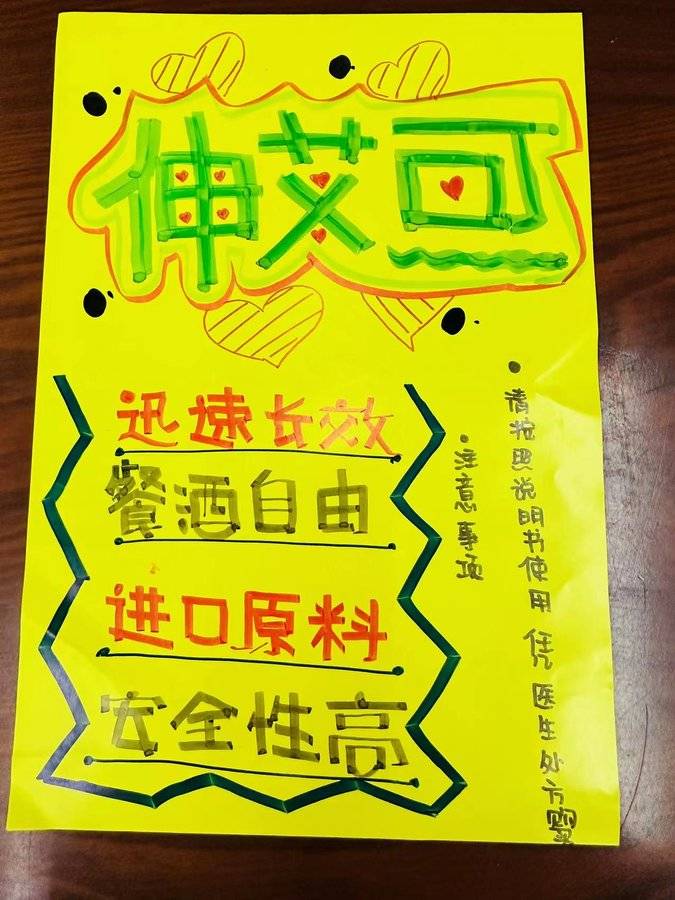 伸艾可
迅速长效
餐酒自由
进口原料
安全性高
·注意事项
·请按照说明书使用 凭医生处方购买